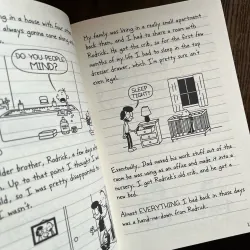 ng in a house with four
always gonna come along
DO YOU PEOPLE
MIND?
lder brother, Rodrick, a few da
n. Up to that point I thought I w
ld, so I was pretty disappointed
I wasn't.
My family was living in a really small apartment
back then, and I had to share a room with
Rodrick. He got the crib, so for the first few
months of my life I had to sleep in the top
dresser drawer, which I'm pretty sure isn't
even legal.
SLEEP
TIGHT!
Eventually, Dad moved his work stuff out of the
room he was using as an office and made it into a
nursery. I got Rodrick's old crib, and he got a
new bed.
Almost EVERYTHING I had back in those days
was a hand-me-down from Rodrick.